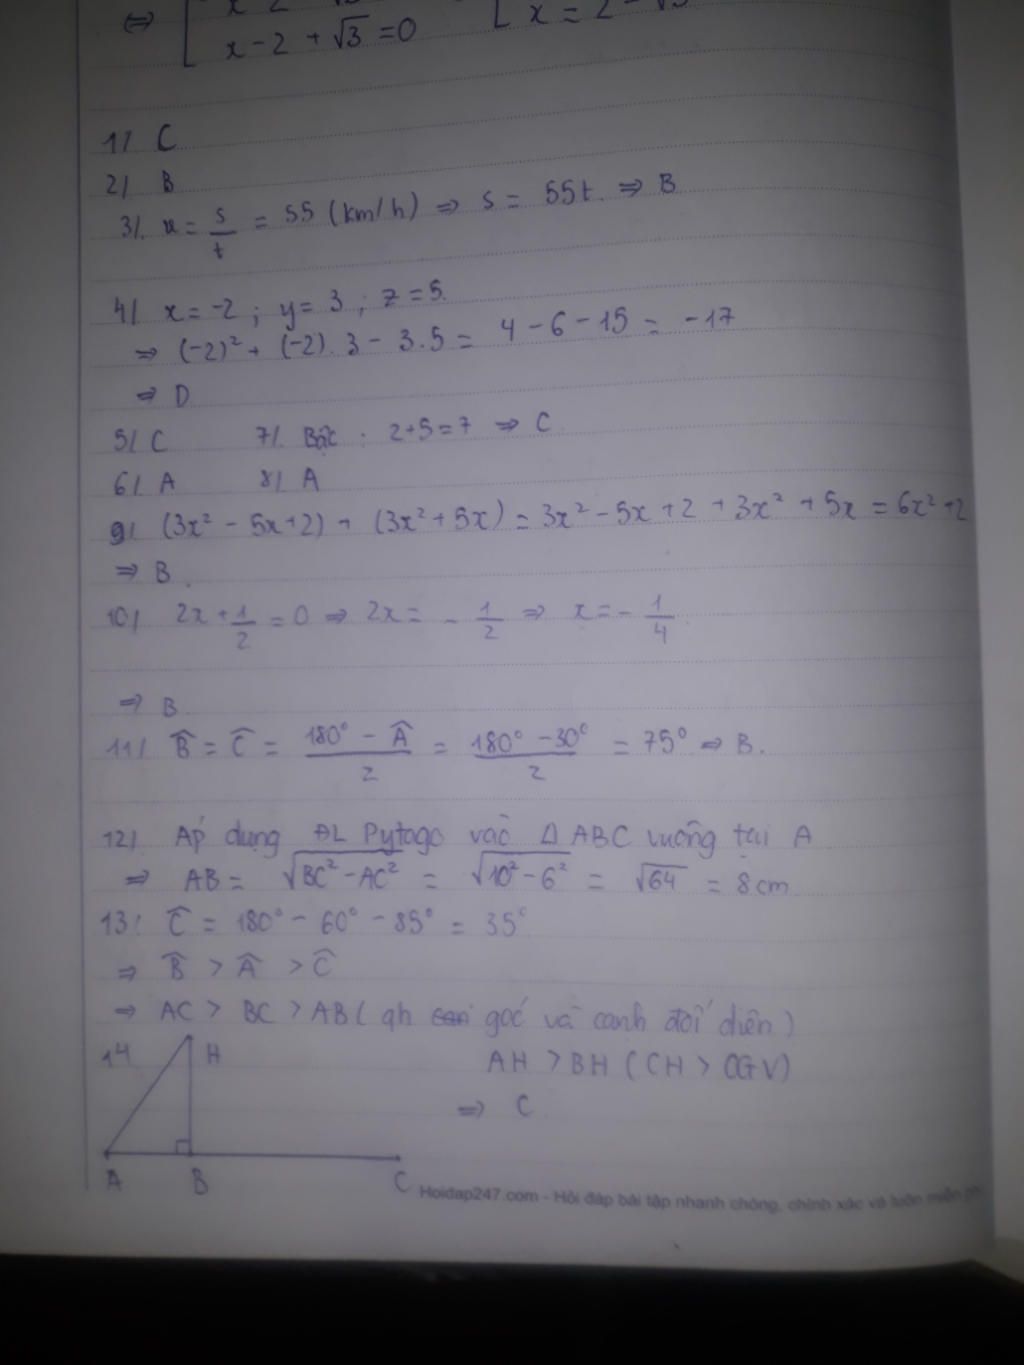 ⇔ [ x - 2
x - 2 + √3 = 0 [ x = 2 - √3
1/ C
2/ B
3/. v = s/t = 55 (km/h) ⇒ s = 55t. ⇒ B
4/ x = -2 ; y = 3 ; z = 5.
⇒ (-2)² + (-2). 3 - 3.5 = 4 - 6 - 15 = -17
⇒ D
5/ C 7/. Bậc : 2+5=7 ⇒ C.
6/ A 8/ A
9/ (3x² - 5x+2) + (3x² + 5x) = 3x² - 5x + 2 + 3x² + 5x = 6x² + 2
⇒ B.
10/ 2x + 1/2 = 0 ⇒ 2x = - 1/2 ⇒ x = - 1/4.
⇒ B
11/ B̂ = Ĉ = (180° - Â)/2 = (180° - 30°)/2 = 75° ⇒ B.
12/ Áp dụng ĐL Pytago vào Δ ABC vuông tại A
⇒ AB = √(BC² - AC²) = √(10² - 6²) = √64 = 8cm
13/ Ĉ = 180° - 60° - 85° = 35°
⇒ B̂ > Â > Ĉ
⇒ AC > BC > AB ( qh góc và cạnh đối diện )
14 H AH > BH ( CH > CGV)
⇒ C
A B C
Hoidap247.com - Hỏi đáp bài tập nhanh chóng, chính xác và luôn miễn ph